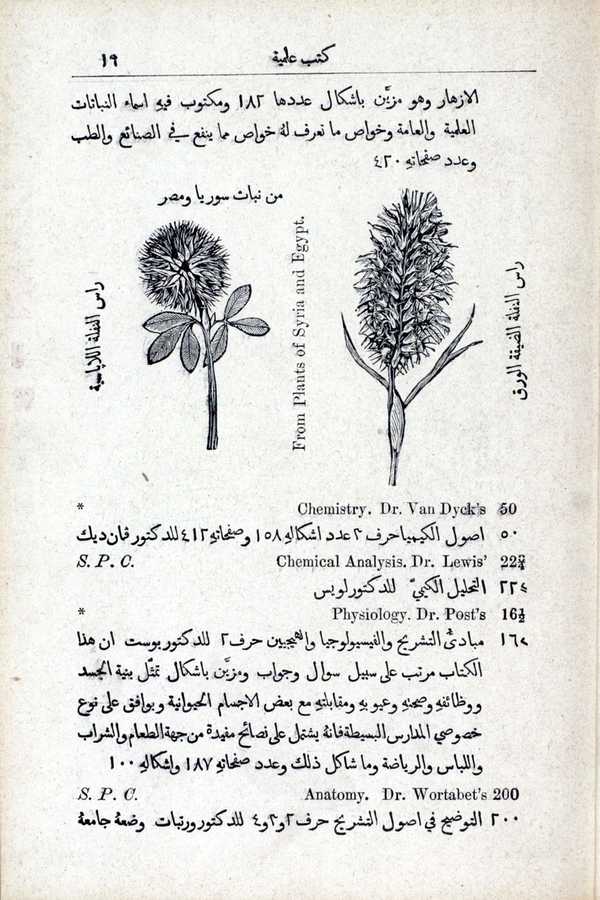 كتب علمية ١٩
الازهار وهو مزيَّن باشكال عددها ١٨٢ ومكتوب فيهِ اسماء النباتات
العلمية والعامة وخواص ما نعرف لهُ خواص مما ينفع في الصنائع والطب
وعدد صفحاتهِ ٤٢٠
من نبات سوريا ومصر
راس النفلة اللاباسية
From Plants of Syria and Egypt.
راس النفلة الضيقة الورق
* Chemistry. Dr. Van Dyck's 50
٥٠ اصول الكيميا حرف ٢ عدد اشكالهِ ١٥٨ وصفحاتهِ ٤١٢ للدكتور ڤان ديك
S. P. C. Chemical Analysis. Dr. Lewis' 22¾
التحليل الكيميّ للدكتور لويس
* Physiology. Dr. Post's 16½
مبادئُ التشريح والفيسيولوجيا والهيجيين حرف ٢ للدكتور بوست ان هذا
الكتاب مرتب على سبيل سوال وجواب ومزيَّن باشكال تمثّل بنية الجسد
ووظائفهِ وصحتهِ وعيوبهِ ومقابلتهِ مع بعض الاجسام الحيوانية ويوافق على نوع
خصوصي المدارس البسيطة فانهُ يشتمل على نصائح مفيدة من جهة الطعام والشراب
واللباس والرياضة وما شاكل ذلك وعدد صفحاتهِ ١٨٧ واشكالهِ ١٠٠
S. P. C. Anatomy. Dr. Wortabet's 200
٢٠٠ التوضيح في اصول التشريح حرف ٢ و٣ و٤ للدكتور ورتبات وضعهُ جامعهُ